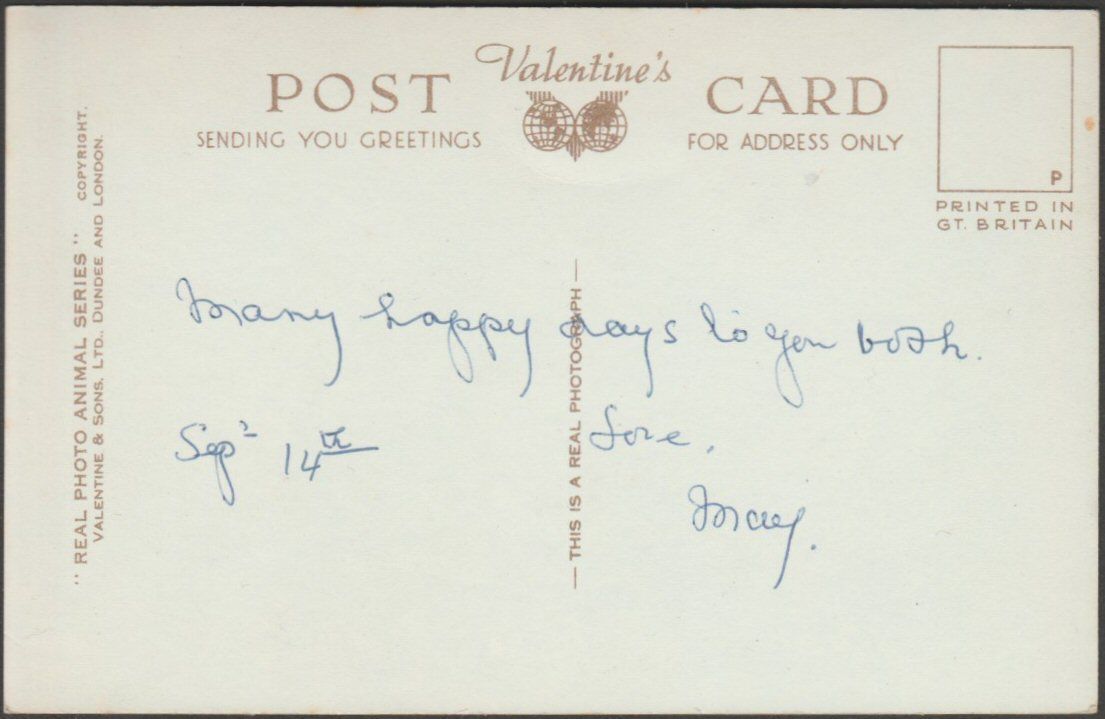 Valentine's
POST CARD
SENDING YOU GREETINGS
FOR ADDRESS ONLY
P
PRINTED IN
GT. BRITAIN
"REAL PHOTO ANIMAL SERIES" COPYRIGHT.
VALENTINE & SONS, LTD., DUNDEE AND LONDON.
— THIS IS A REAL PHOTOGRAPH —
Many happy days to you both.
Sept 14th
Love,
May.